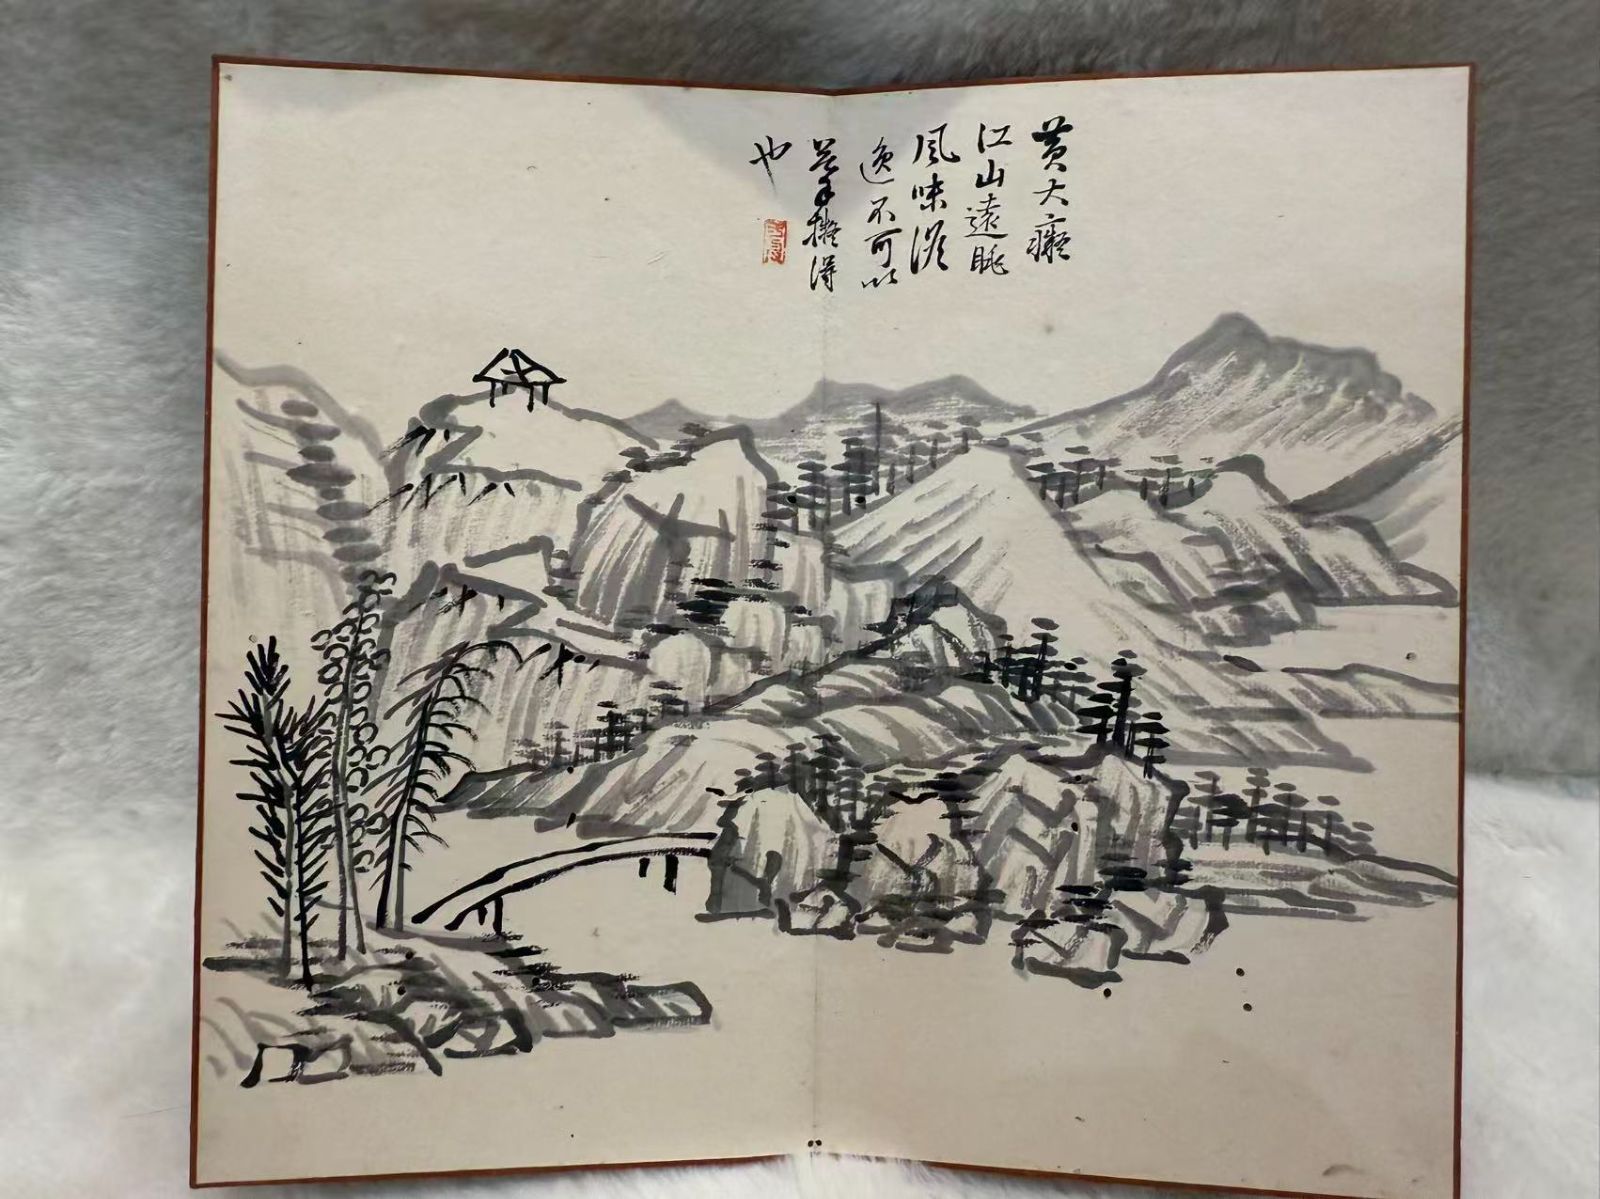 黄大癡
江山遠眺
風味澹
逸不可以
筆擬得
也